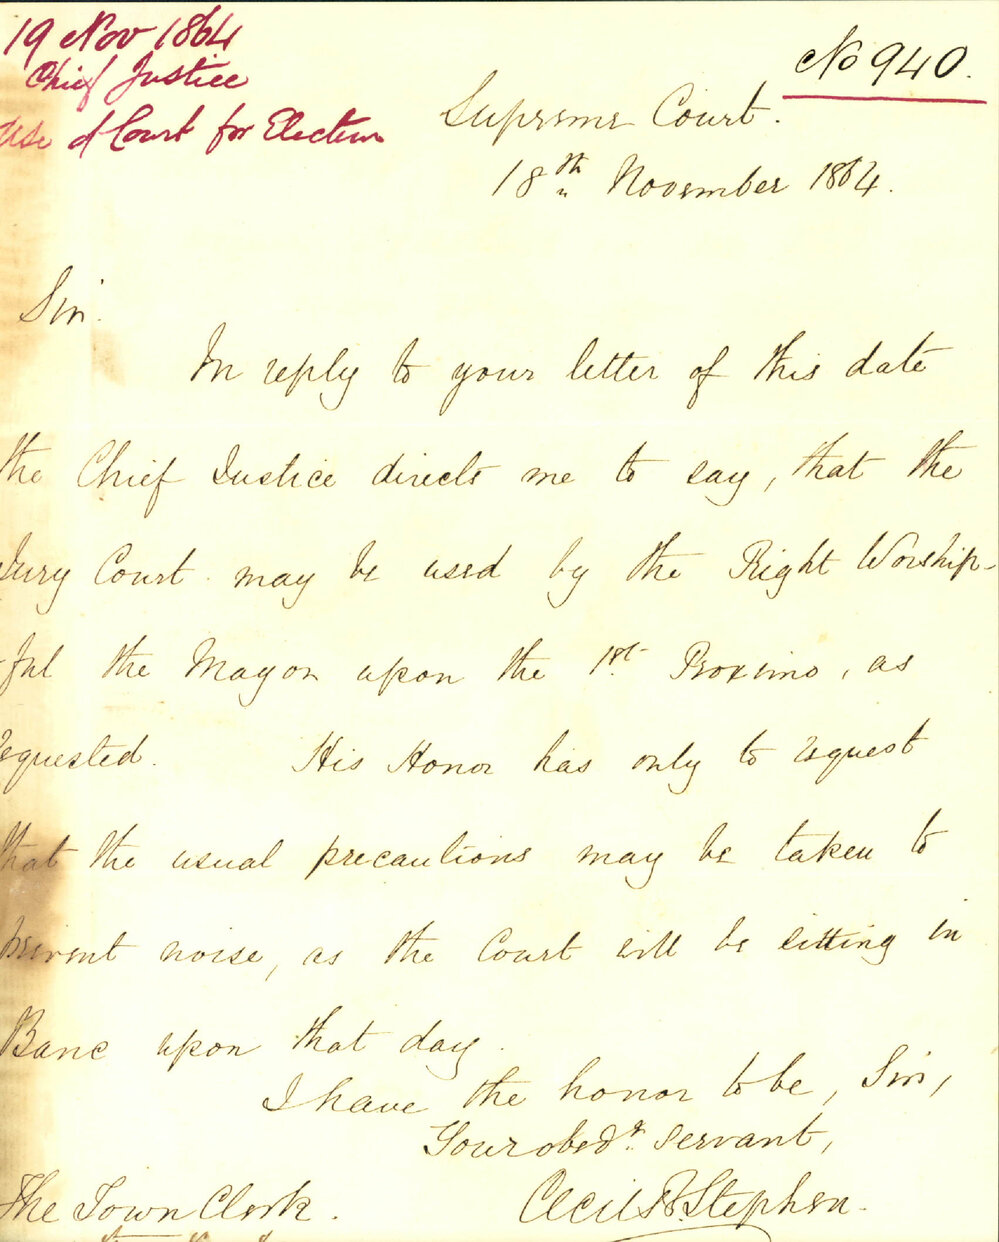 19 Nov 1864
Chief Justice
Use of Court for Election
No 940.
Supreme Court.
18th November 1864.
Sir.
In reply to your letter of this date
the Chief Justice directs me to say, that the
Jury Court may be used by the Right Worship-
-ful the Mayor upon the 1st Proximo, as
requested. His Honor has only to request
that the usual precautions may be taken to
prevent noise, as the Court will be sitting in
Banc upon that day.
I have the honor to be, Sir,
Your obedt. servant,
Cecil Stephen.
The Town Clerk.